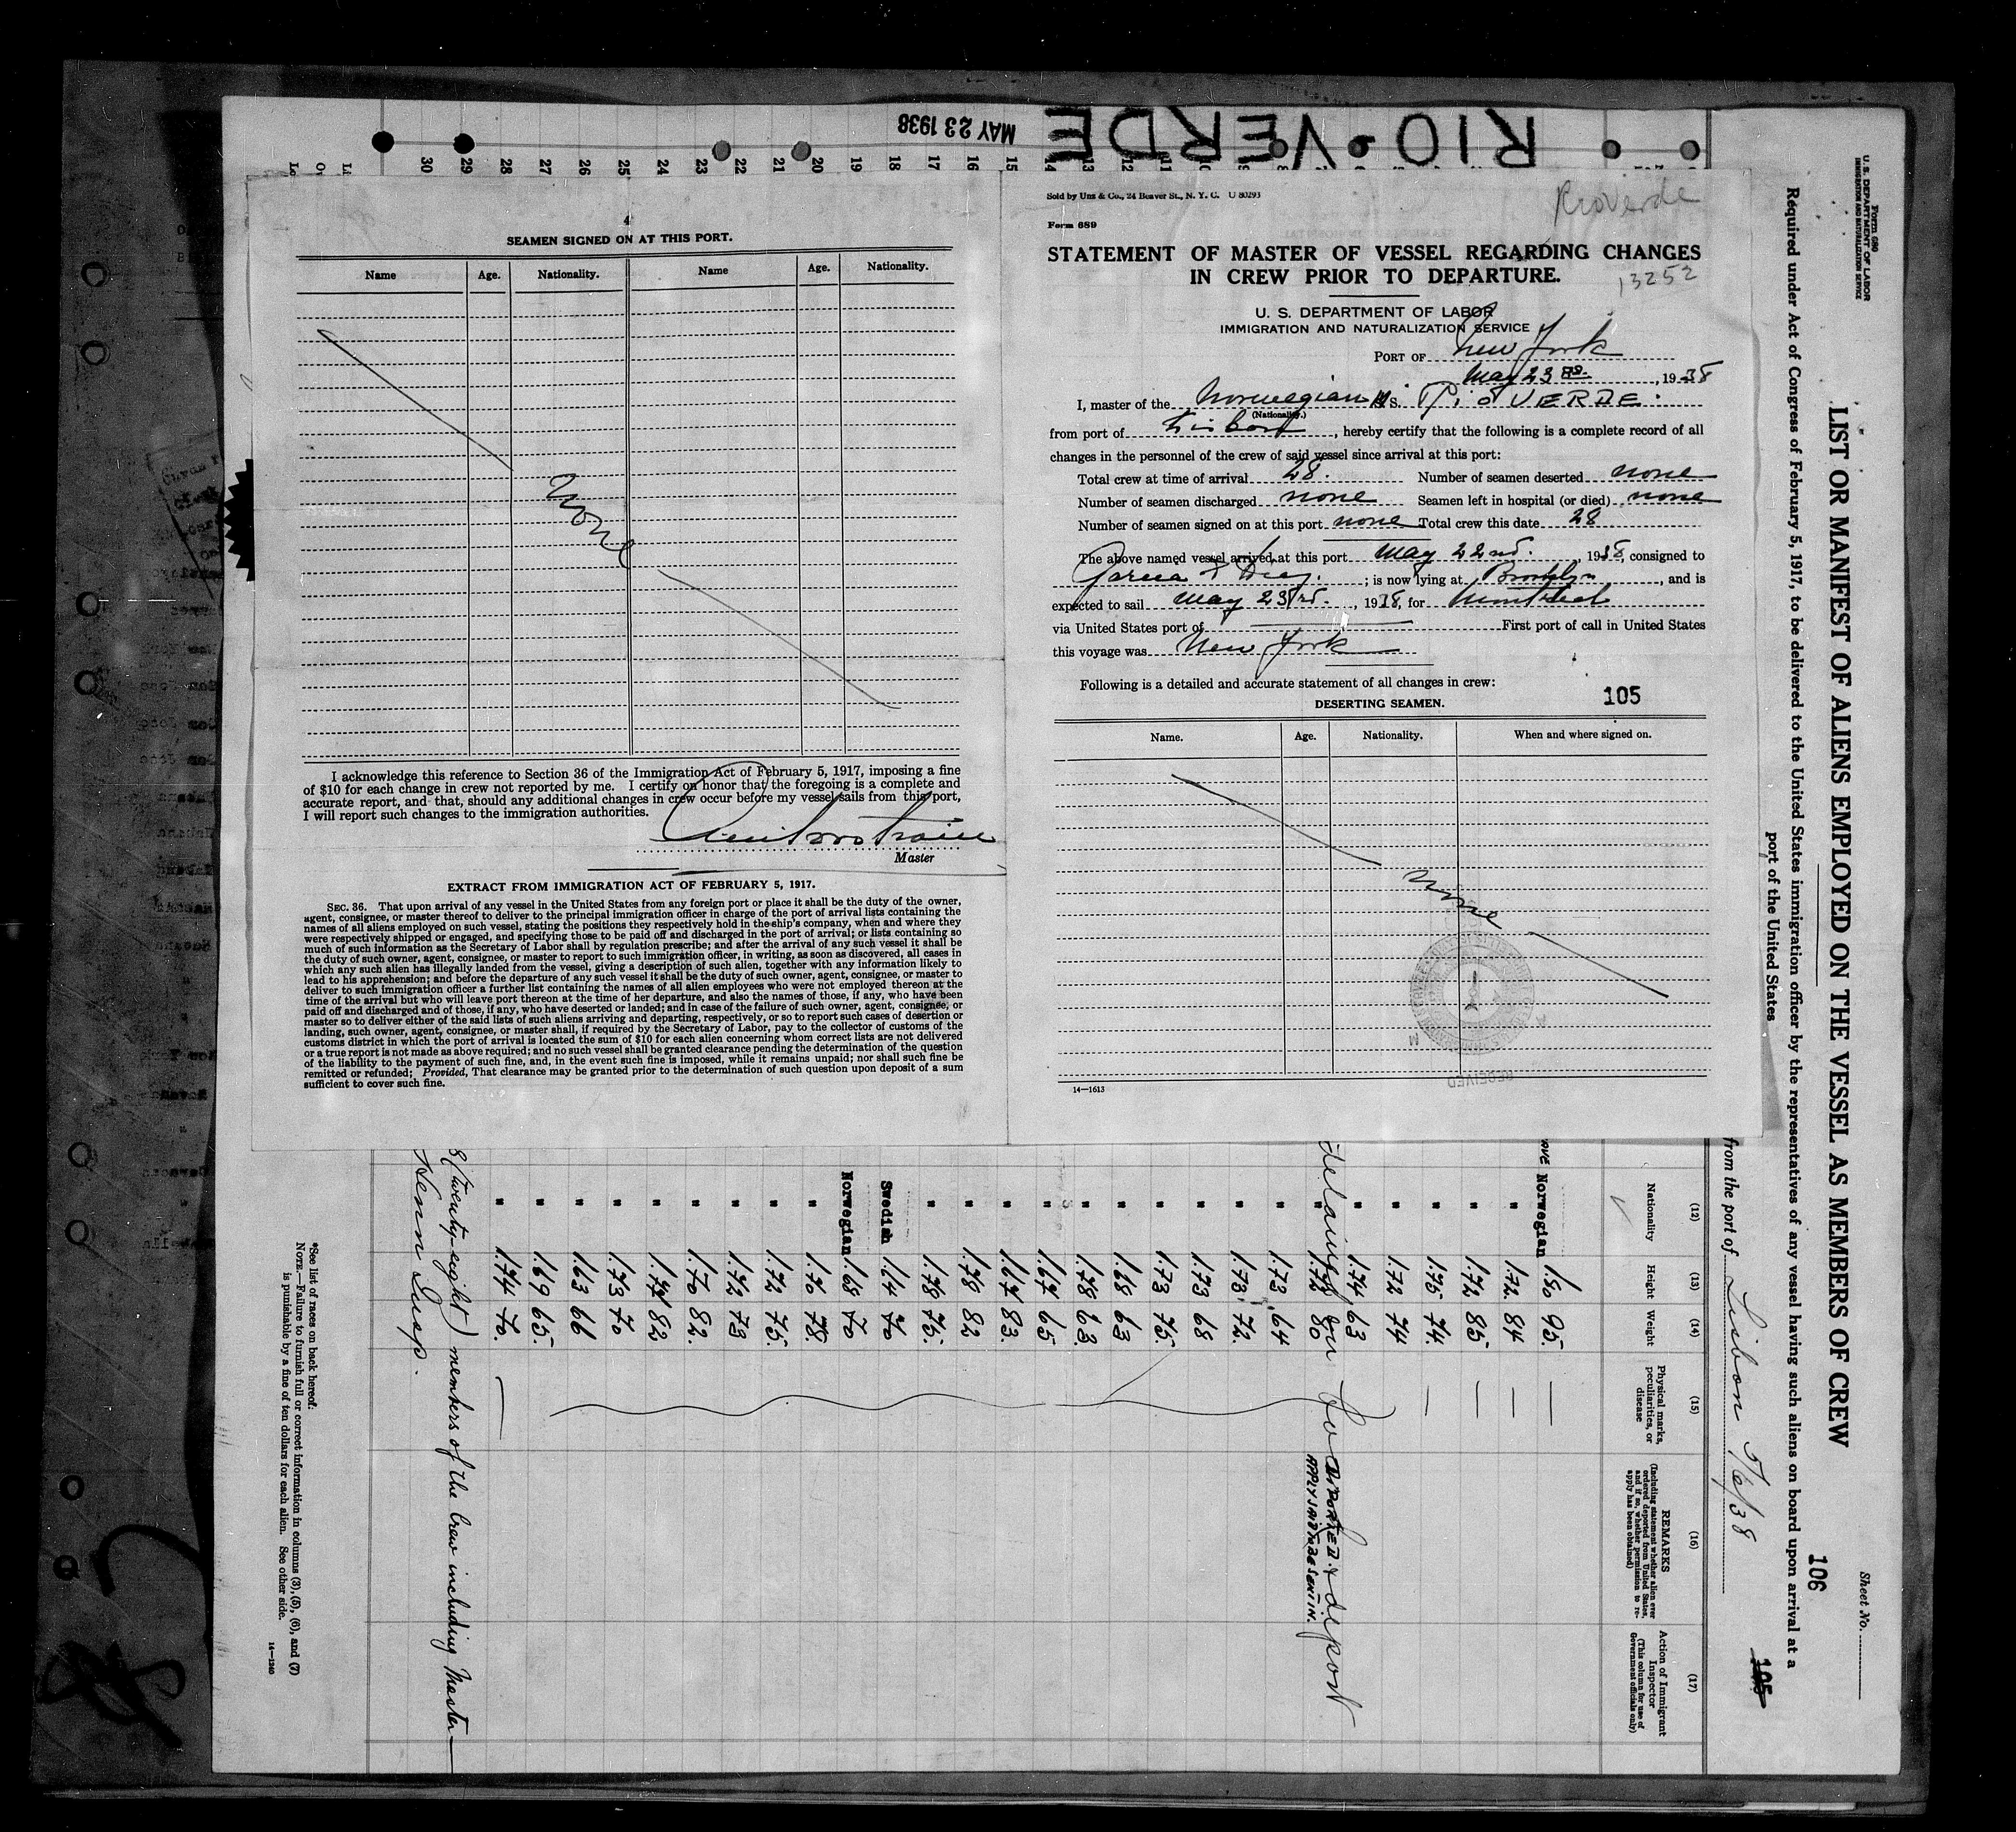 RIO VERDE
MAY 23 1938
30 29 28 27 26 25 24 23 22 21 20 19 18 17 16 15 14 13 12 11
4
SEAMEN SIGNED ON AT THIS PORT.
Name Age. Nationality. Name Age. Nationality.
None
I acknowledge this reference to Section 36 of the Immigration Act of February 5, 1917, imposing a fine
of $10 for each change in crew not reported by me. I certify on honor that the foregoing is a complete and
accurate report, and that, should any additional changes in crew occur before my vessel sails from this port,
I will report such changes to the immigration authorities.
Master
EXTRACT FROM IMMIGRATION ACT OF FEBRUARY 5, 1917.
SEC. 36. That upon arrival of any vessel in the United States from any foreign port or place it shall be the duty of the owner,
agent, consignee, or master thereof to deliver to the principal immigration officer in charge of the port of arrival lists containing the
names of all aliens employed on such vessel, stating the positions they respectively hold in the ship's company, when and where they
were respectively shipped or engaged, and specifying those to be paid off and discharged in the port of arrival; or lists containing so
much of such information as the Secretary of Labor shall by regulation prescribe; and after the arrival of any such vessel it shall be
the duty of such owner, agent, consignee, or master to report to such immigration officer, in writing, as soon as discovered, all cases in
which any such alien has illegally landed from the vessel, giving a description of such alien, together with any information likely to
lead to his apprehension; and before the departure of any such vessel it shall be the duty of such owner, agent, consignee, or master to
deliver to such immigration officer a further list containing the names of all alien employees who were not employed thereon at the
time of the arrival but who will leave port thereon at the time of her departure, and also the names of those, if any, who have been
paid off and discharged and of those, if any, who have deserted or landed; and in case of the failure of such owner, agent, consignee, or
master so to deliver either of the said lists of such aliens arriving and departing, respectively, or so to report such cases of desertion or
landing, such owner, agent, consignee, or master shall, if required by the Secretary of Labor, pay to the collector of customs of the
customs district in which the port of arrival is located the sum of $10 for each alien concerning whom correct lists are not delivered
or a true report is not made as above required; and no such vessel shall be granted clearance pending the determination of the question
of the liability to the payment of such fine, and, in the event such fine is imposed, while it remains unpaid; nor shall such fine be
remitted or refunded; Provided, That clearance may be granted prior to the determination of such question upon deposit of a sum
sufficient to cover such fine.
Sold by Unz & Co., 24 Beaver St., N. Y. C. U 80293
Rio Verde
Form 689
STATEMENT OF MASTER OF VESSEL REGARDING CHANGES
IN CREW PRIOR TO DEPARTURE.
13252
U. S. DEPARTMENT OF LABOR
IMMIGRATION AND NATURALIZATION SERVICE
PORT OF New York
May 23rd. , 1938
I, master of the Norwegian M S. Rio VERDE.
(Nationality.)
from port of Lisbon , hereby certify that the following is a complete record of all
changes in the personnel of the crew of said vessel since arrival at this port:
Total crew at time of arrival 28. Number of seamen deserted none
Number of seamen discharged none Seamen left in hospital (or died) none
Number of seamen signed on at this port none Total crew this date 28
The above named vessel arrived at this port May 22nd. , 1938, consigned to
Garcia & Diaz. ; is now lying at Brooklyn , and is
expected to sail May 23rd. , 1938, for Montreal
via United States port of First port of call in United States
this voyage was New York
Following is a detailed and accurate statement of all changes in crew:
105
DESERTING SEAMEN.
Name. Age. Nationality. When and where signed on.
None
RECEIVED
14—1613
Form 680
U. S. DEPARTMENT OF LABOR
IMMIGRATION AND NATURALIZATION SERVICE
Sheet No.
LIST OR MANIFEST OF ALIENS EMPLOYED ON THE VESSEL AS MEMBERS OF CREW
106
Required under Act of Congress of February 5, 1917, to be delivered to the United States immigration officer by the representatives of any vessel having such aliens on board upon arrival at a
port of the United States
105
from the port of Lisbon 5/6/38
(12) (13) (14) (15) (16) (17)
Nationality Height Weight
Physical marks, peculiarities, or disease
REMARKS
(Including statement whether alien ever ordered deported from United States, and if so, whether permission to reapply has been obtained)
Action of Immigrant Inspector
(This column for use of Government officials only)
Norwegian 180 95.
" 1.72 84
" 1.72 85
" 1.75 74.
" 1.72 74
" 1.74 63
" 1.72 80
DEPORTED. & deport
" 1.73 64
" 1.73 72.
" 1.73 68
" 1.73 75.
" 1.68 63
" 1.78 63.
" 1.67 65
" 1.67 83.
" 1.78 82
" 1.78 75.
Swedish 1.64 70
Norwegian 1.68 70
" 1.70 78.
" 1.72 75.
" 1.72 73
" 1.70 82.
" 1.74 82
" 1.73 70
" 1.63 66
" 1.69 65.
" 1.74 70.
8 (twenty-eight) members of the Crew including Master
*See list of races on back hereof.
NOTE.—Failure to furnish full or correct information in columns (3), (5), (6), and (7)
is punishable by a fine of ten dollars for each alien. See other side.
14—1240